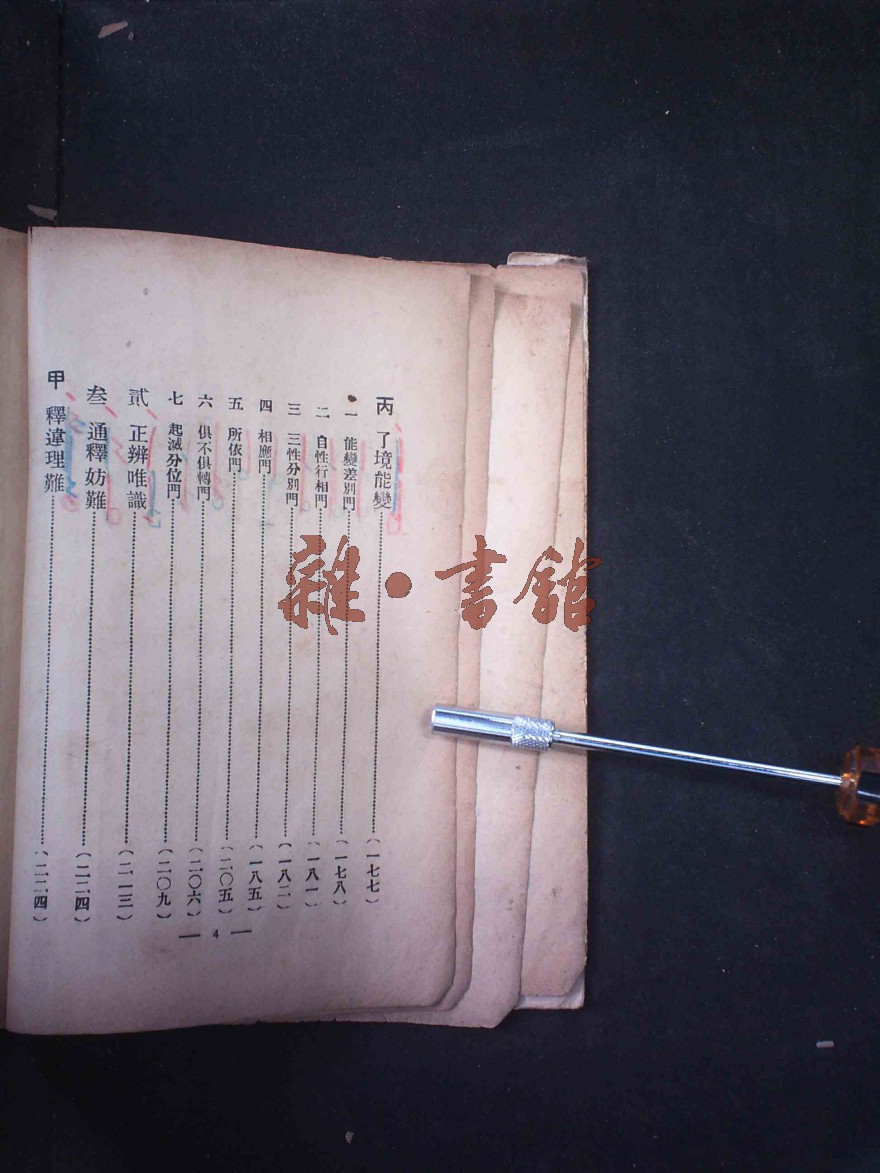 丙 了境能變……（一七七）
一 能變差別門……（一七八）
二 自性行相門……（一八一）
三 三性分別門……（一八二）
四 相應門……（一八五）
五 所依門……（二〇五）
六 俱不俱轉門……（二〇六）
七 起滅分位門……（二〇九）
貳 正辨唯識……（二一三）
叁 通釋妨難……（二二四）
甲 釋違理難……（二二四）
— 4 —
雜·書館